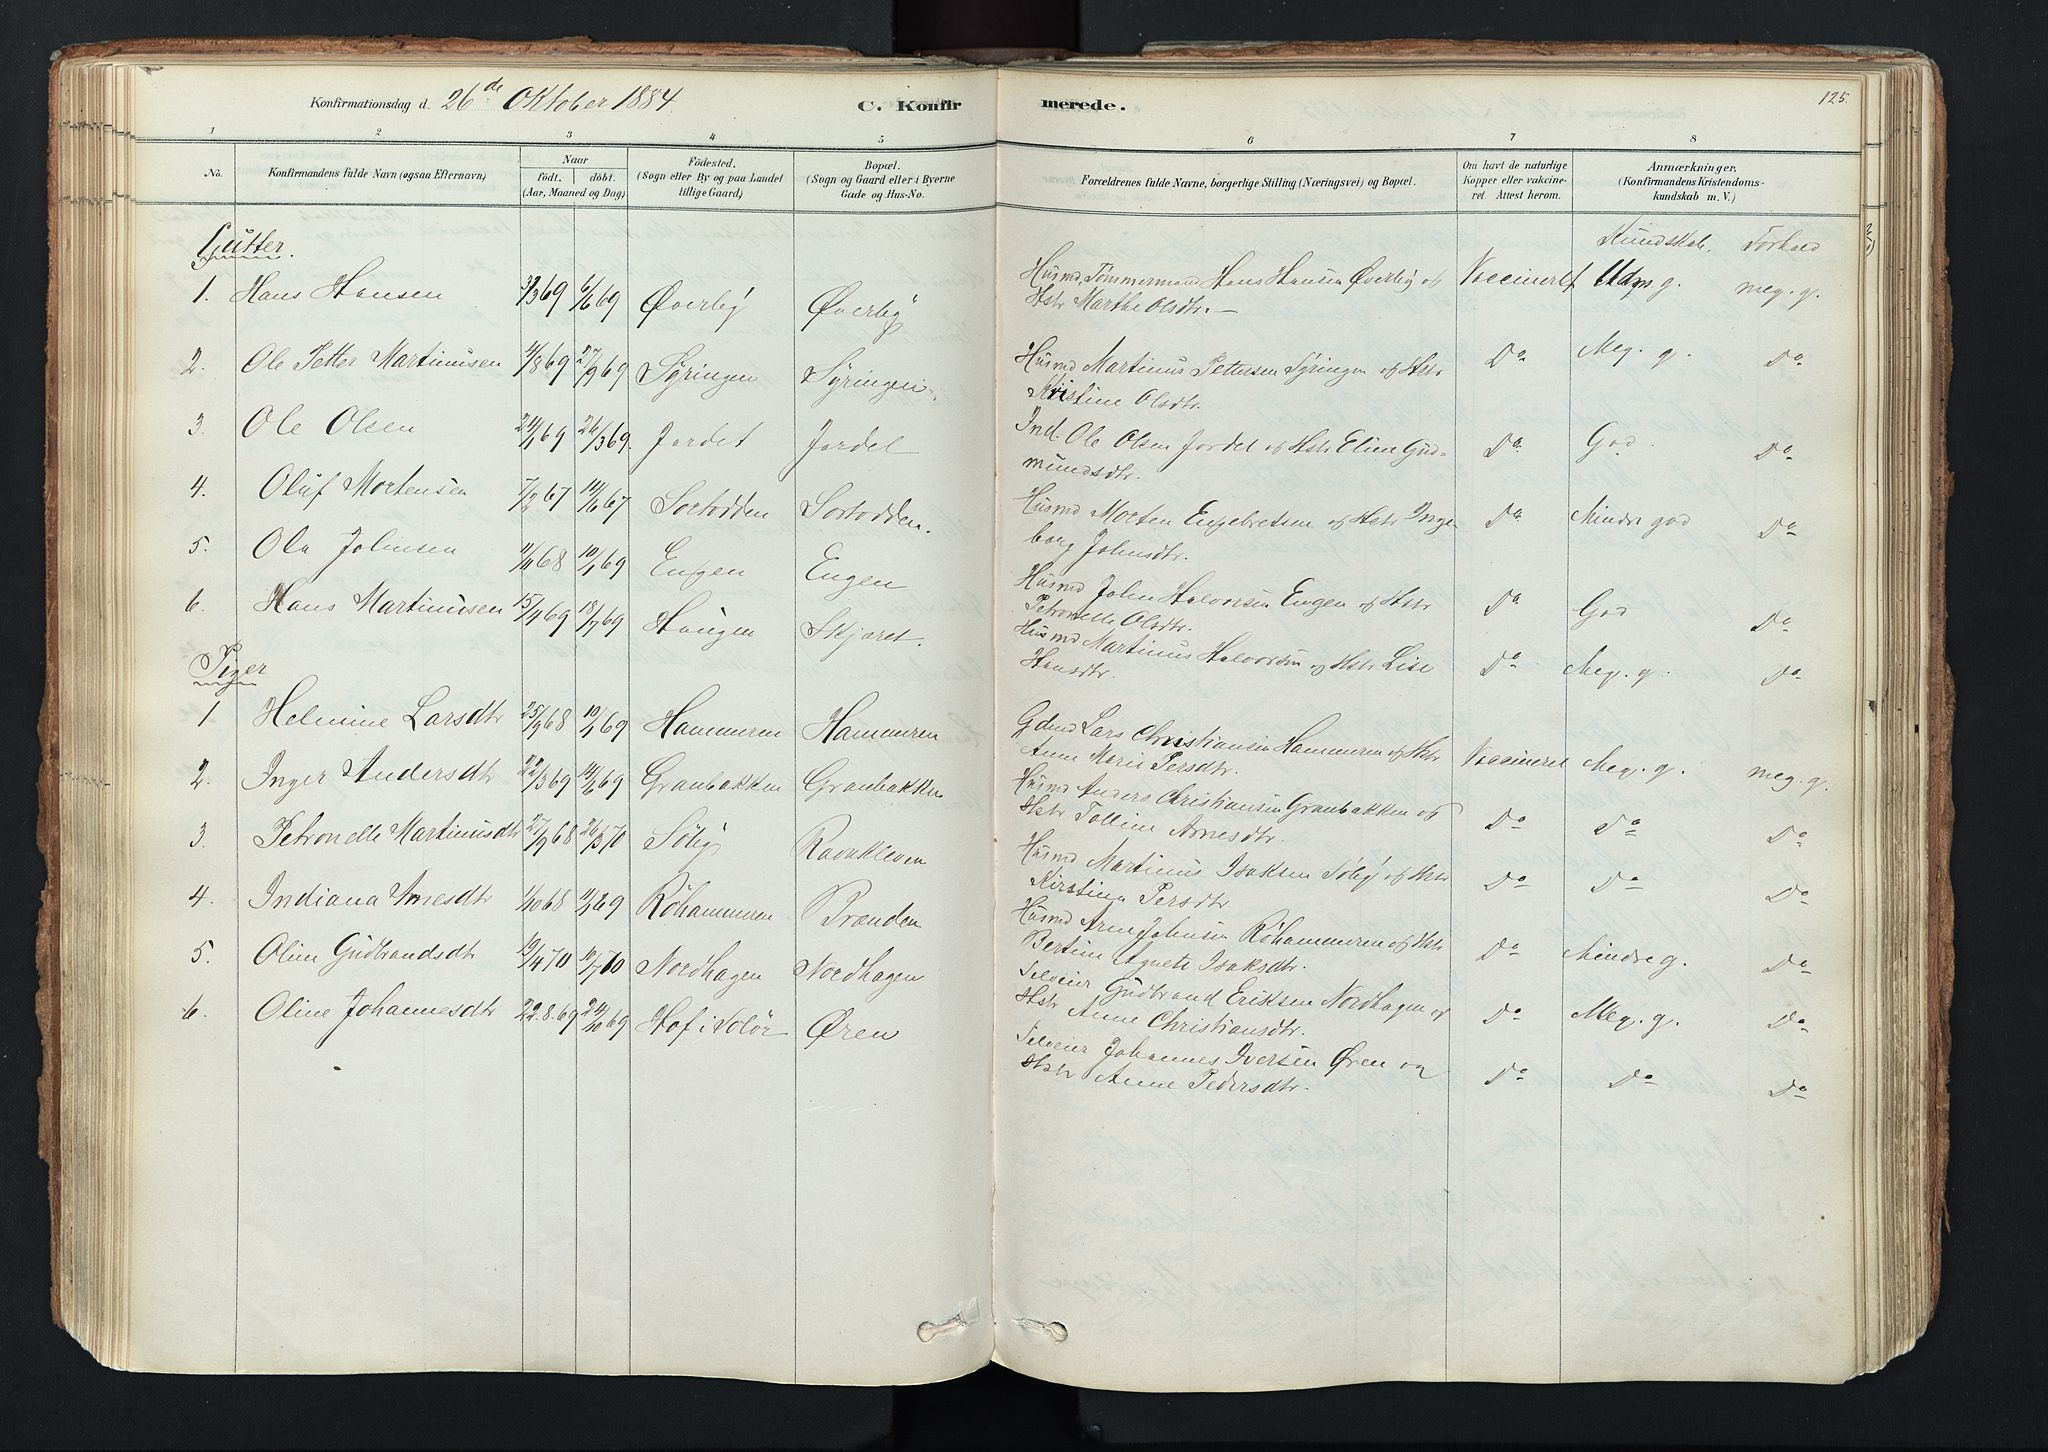 Konfirmationsdag d. 26de Oktober 1884. C. Konfirmerede. 125.
1 2 3 4 5 6 7 8
No. Konfirmandens fulde Navn (ogsaa Efternavn) Naar födt. döbt. (Aar, Maaned og Dag) Födested. (Sogn eller By og paa Landet tillige Gaard) Bopæl. (Sogn og Gaard eller i Byerne Gade og Hus-No. Forældrenes fulde Navne, borgerlige Stilling (Næringsvei) og Bopæl. Om havt de naturlige Kopper eller vakcineret. Attest herom. Anmærkninger. (Konfirmandens Kristendomskundskab m. V.)
Gutter. Kundskab. Forhold
1. Hans Hansen 3/3 69 6/6 69 Øverby Øverby Husmd, Tømmermand Hans Hansen Øverby og
Hstr Marthe Olsdtr. — Vaccineret Udm. g. meg. g.
2. Ole Petter Martinusen 4/8 69 27/9 69 Syringen Syringen Husmd Martinus Pettersen Syringen og Hstr
Kristine Olsdtr. Do Meg. g. Do
3. Ole Olsen 24/1 69 26/3 69. Jordet Jordet Ind. Ole Olsen Jordet og Hstr Eline Gud-
mundsdtr. Do God. Do
4. Oluf Mortensen 7/2 67 Sortodden Sortodden. Husmd Morten Engebretsen og Hstr Inge
borg Johnsdtr. Do Mindre god Do
5. Ole Johnsen 68 10/1 69 Engen Engen Husmd John Halvorsen Engen og Hstr
Petronelle Olsdtr. Do God Do
6. Hans Martinusen 15/4 69 18/7 69 Haugen Skjæret. Husmd Martinus Halvorsen og Hstr Lise
Hansdtr. Do Meg. g. Do
Piger
1 Helmine Larsdtr 25/9 68 10/1 69 Hammeren Hammeren Gdmd Lars Christiansen Hammeren og Hstr
Anne Marie Persdtr. Vaccineret Meg. g. meg. g.
2. Inger Andersdtr 22/3 69 69 Granbakken Granbakken Husmd Anders Christiansen Granbakken og
Hstr Arnesdtr. Do Do Do
3. Petronelle Martinusdtr 27/9 68 26/3 70 Søby Ravnkleven Husmd Martinus Isaksen Søby og Hstr
Kirstine Persdtr Do Do Do
4. Indiana Arnesdtr 1/10 68 69 Röhammeren Brænden Husmd Arne Johnsen Röhammeren og Hstr
Bertine Agnete Isaksdtr. Do Mindre g. Do
5. Oline Gudbrandsdtr 19/4 70 10/7 70 Nordhagen Nordhagen Selveier Gudbrand Eriksen Nordhagen og
Hstr Anne Christiansdtr. Do Meg. g. Do
6. Oline Johannesdtr 22.8.69 24/10 69 Hof i Solør Øren Selveier Johannes Iversen Øren og
Hstr Anne Pedersdtr. Do Do Do